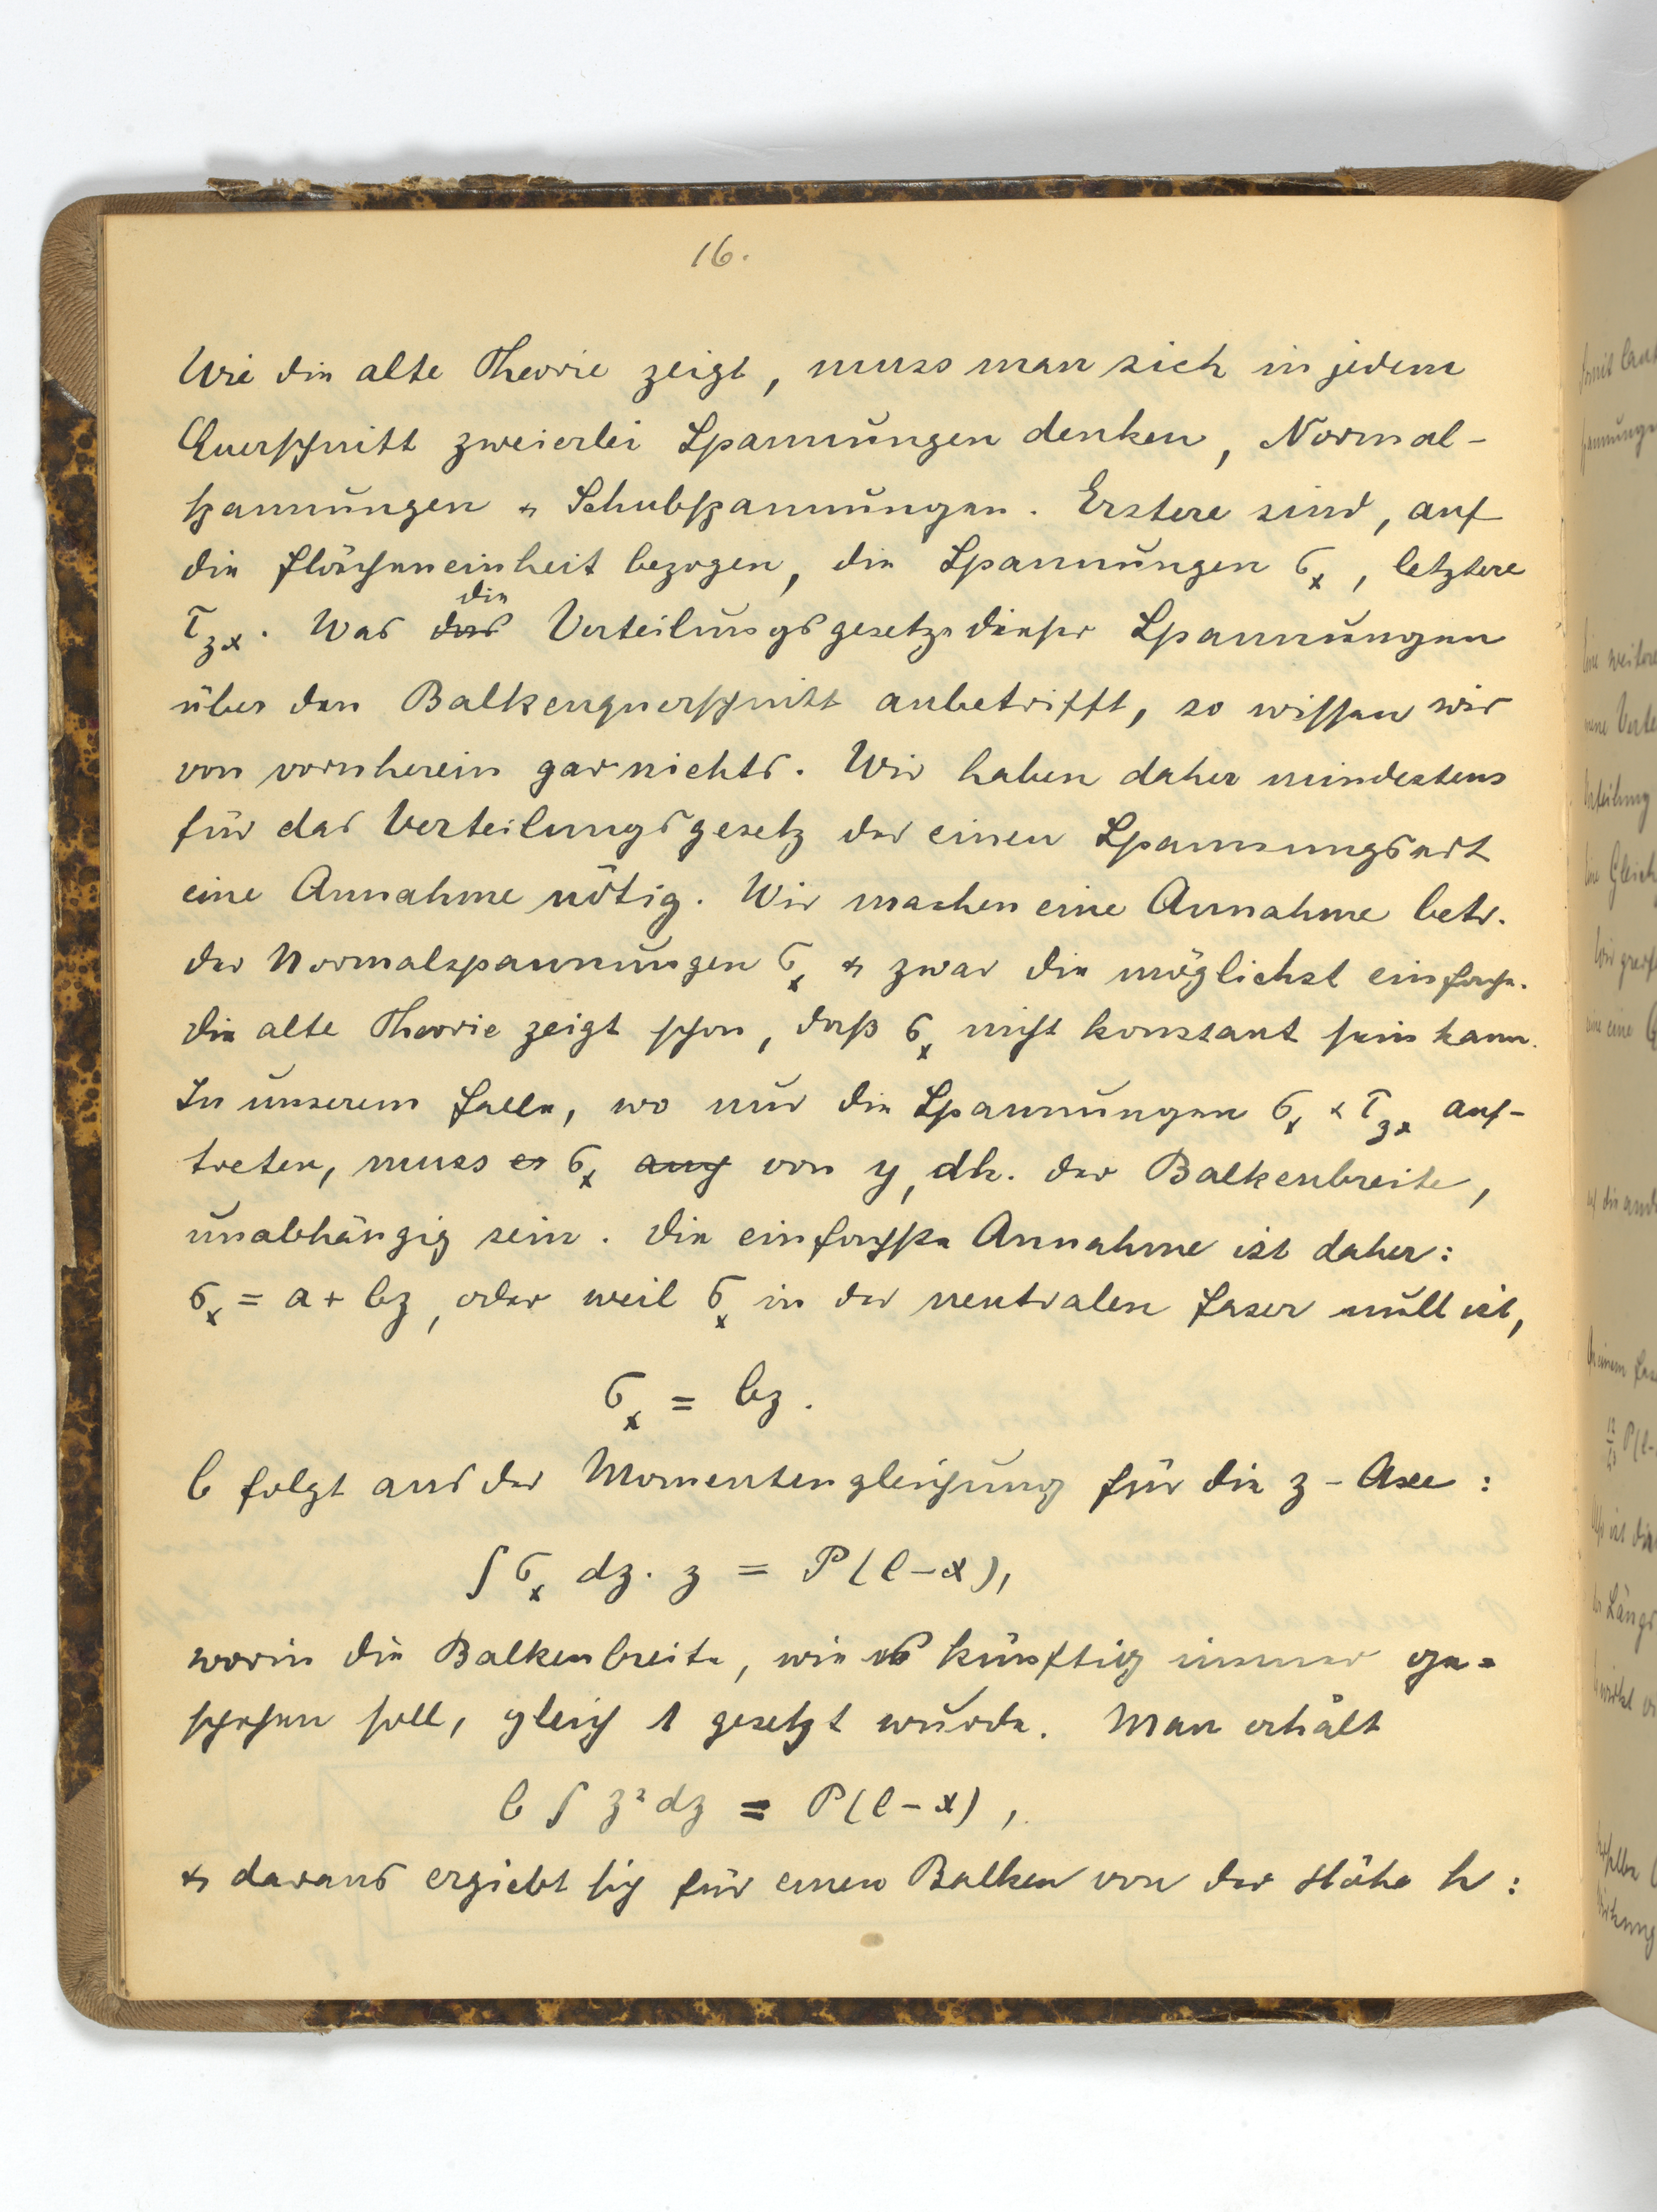 16.
Wie die alte Theorie zeigt, muss man sich in jedem
Querschnitt zweierlei Spannungen denken, Normal-
spannungen & Schubspannungen. Erstere sind, auf
die Flächeneinheit bezogen, die Spannungen σₓ, letztere
die
τ_zx. Was das Verteilungsgesetze dieser Spannungen
über den Balkenquerschnitt anbetrifft, so wissen wir
von vornherein gar nichts. Wir haben daher mindestens
für das Verteilungsgesetz der einen Spannungsart
eine Annahme nötig. Wir machen eine Annahme betr.
der Normalspannungen σₓ & zwar die möglichst einfache.
Die alte Theorie zeigt schon, daß σₓ nicht konstant sein kann.
In unserem Falle, wo nur die Spannungen σₓ & τ_zx auf-
treten, muss es σₓ auch von y, dh. der Balkenbreite,
unabhängig sein. Die einfachste Annahme ist daher:
σₓ = a + bz, oder weil σₓ in der neutralen Faser null ist,
σₓ = bz.
b folgt aus der Momentengleichung für die z-Axe:
∫ σₓ dz. z = P(l-x),
worin die Balkenbreite, wie es künftig immer ge=
schehen soll, gleich 1 gesetzt wurde. Man erhält
b ∫ z² dz = P(l-x),
& daraus ergiebt sich für einen Balken von der Höhe h: